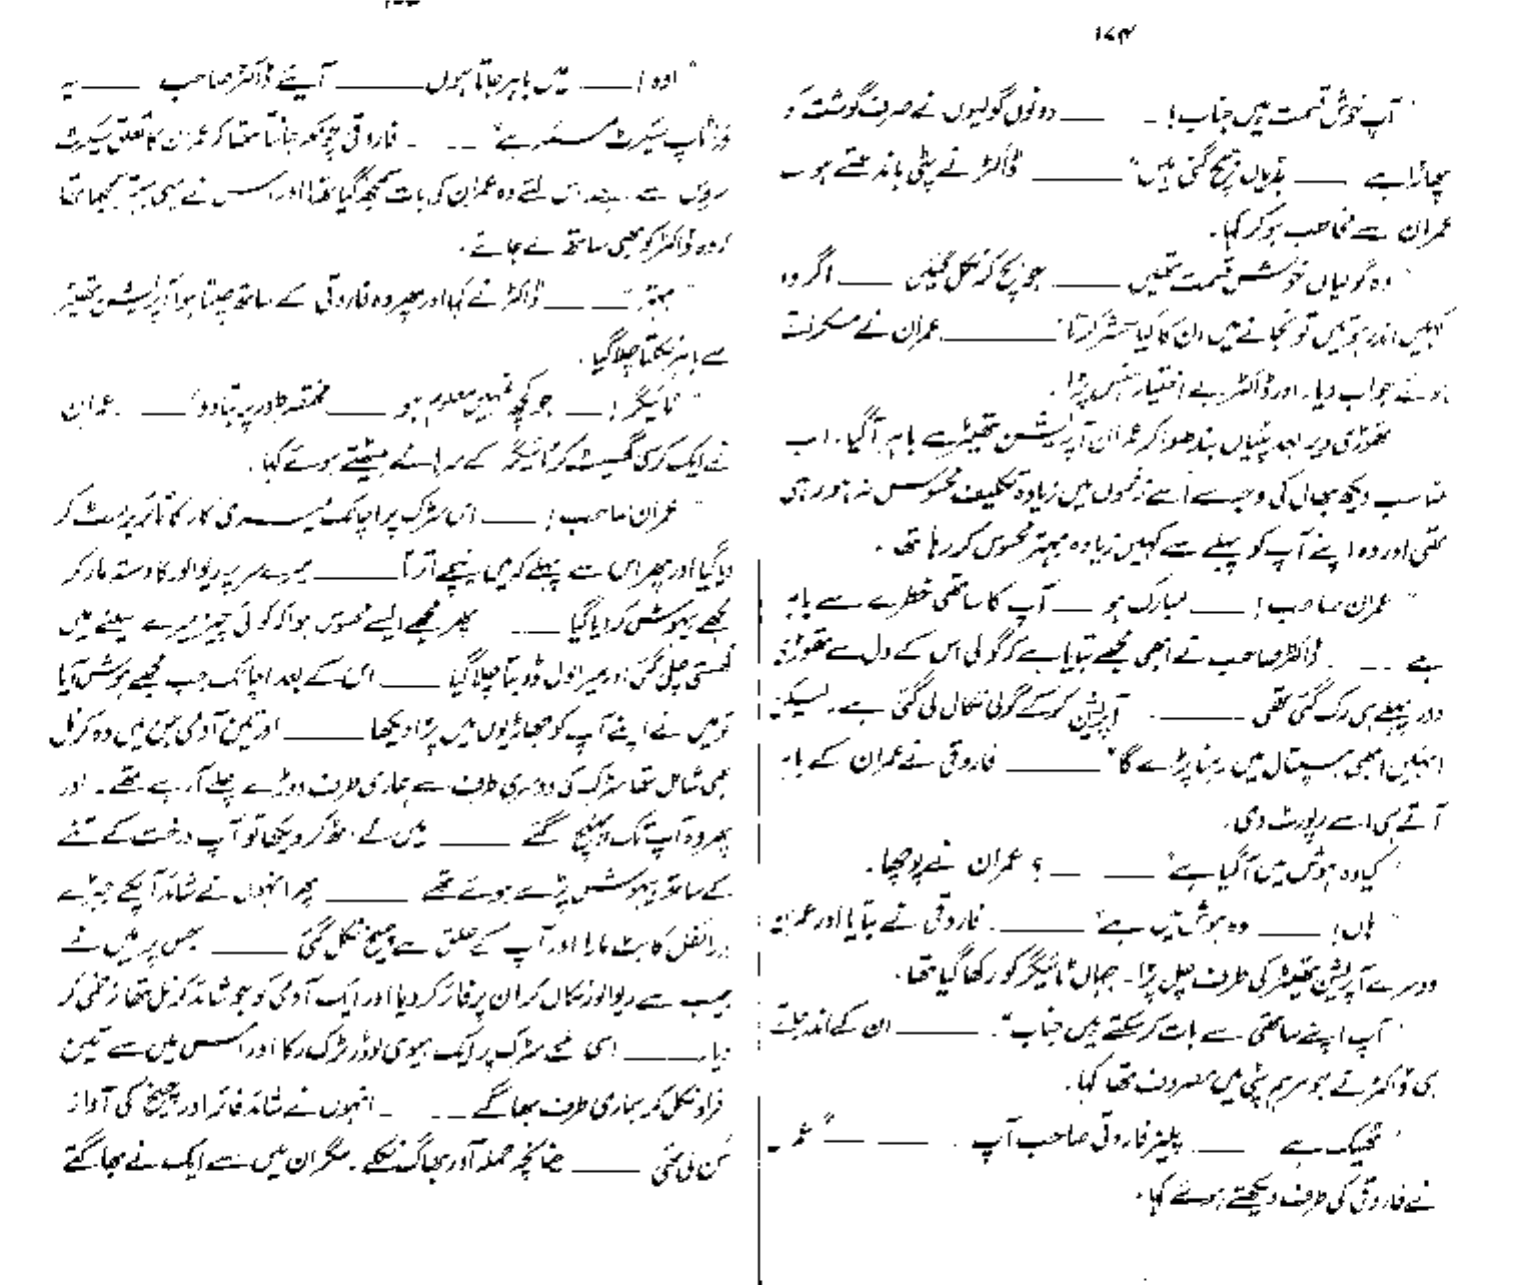 ۱۷۴
"آپ خوش قسمت ہیں جناب! ـــــ دونوں گولیوں نے صرف گوشت کو
پھاڑا ہے ـــــ ہڈیاں بچ گئی ہیں" ـــــ ڈاکٹر نے پٹی باندھتے ہوئے
عمران سے مخاطب ہو کر کہا۔
"وہ گولیاں خوش قسمت تھیں ـــــ جو بچ کر نکل گئیں ـــــ اگر وہ
کہیں اندر ہوتیں تو نجانے میں ان کا کیا حشر کرتا" ـــــ عمران نے مسکراتے
ہوئے جواب دیا۔ اور ڈاکٹر بے اختیار ہنس پڑا۔
تھوڑی دیر بعد پٹیاں بندھوا کر عمران آپریشن تھیٹر سے باہر آ گیا۔ اب
مناسب دیکھ بھال کی وجہ سے اسے زخموں میں زیادہ تکلیف محسوس نہ ہو رہی
تھی اور وہ اپنے آپ کو پہلے سے کہیں زیادہ بہتر محسوس کر رہا تھا۔
"عمران صاحب! ـــــ مبارک ہو ـــــ آپ کا ساتھی خطرے سے باہر
ہے ـــــ ڈاکٹر صاحب نے ابھی مجھے بتایا ہے کہ گولی اس کے دل سے تھوڑی
دور پہلے ہی رک گئی تھی ـــــ آپریشن کر کے گولی نکال لی گئی ہے۔ لیکن
انہیں ابھی ہسپتال میں رہنا پڑے گا" ـــــ فاروقی نے عمران کے باہر
آتے ہی اسے رپورٹ دی۔
"کیا وہ ہوش میں آ گیا ہے" ـــــ ؟ عمران نے پوچھا۔
"ہاں! ـــــ وہ ہوش میں ہے" ـــــ فاروقی نے بتایا اور عمران
دوسرے آپریشن تھیٹر کی طرف چل پڑا۔ جہاں ٹائیگر کو رکھا گیا تھا۔
"آپ اپنے ساتھی سے بات کر سکتے ہیں جناب" ـــــ ان کے اندر جاتے
ہی ڈاکٹر نے جو مرہم پٹی میں مصروف تھا کہا۔
"ٹھیک ہے ـــــ پلیز فاروقی صاحب آپ ـــــ" عمران
نے فاروقی کی طرف دیکھتے ہوئے کہا۔
"اوہ! ـــــ میں باہر جاتا ہوں ـــــ آئیے ڈاکٹر صاحب ـــــ یہ
ٹاپ سیکرٹ مسئلہ ہے" ـــــ فاروقی چونکہ جانتا تھا کہ عمران کا تعلق سیکرٹ
سروس سے ہے اس لئے وہ عمران کی بات سمجھ گیا تھا اور اس نے یہی بہتر سمجھا تھا
کہ وہ ڈاکٹر کو بھی ساتھ لے جائے۔
"بہتر" ـــــ ڈاکٹر نے کہا اور پھر وہ فاروقی کے ساتھ چلتا ہوا آپریشن تھیٹر
سے باہر نکلتا چلا گیا۔
"ٹائیگر! ـــــ جو کچھ تمہیں معلوم ہو ـــــ مختصر طور پر بتا دو" ـــــ عمران
نے ایک کرسی گھسیٹ کر ٹائیگر کے سرہانے بیٹھتے ہوئے کہا۔
"عمران صاحب! ـــــ اس سڑک پر اچانک میری کار کا ٹائر برسٹ کر
دیا گیا اور پھر اس سے پہلے کہ میں نیچے اترتا ـــــ میرے سر پر ریوالور کا دستہ مار کر
مجھے بیہوش کر دیا گیا ـــــ پھر مجھے ایسے محسوس ہوا کہ کوئی چیز میرے سینے میں
گھستی چلی گئی اور میرا دل ڈوبتا چلا گیا ـــــ اس کے بعد اچانک جب مجھے ہوش آیا
تو میں نے اپنے آپ کو جھاڑیوں میں پڑا دیکھا ـــــ اور تین آدمی جن میں وہ کرنل
بھی شامل تھا سڑک کی دوسری طرف سے ہماری طرف دوڑے چلے آ رہے تھے۔ اور
پھر وہ آپ تک پہنچ گئے ـــــ میں نے اٹھ کر دیکھا تو آپ درخت کے تنے
کے ساتھ بیہوش پڑے ہوئے تھے ـــــ پھر انہوں نے شائد آپ کے جبڑے
پر رائفل کا بٹ مارا اور آپ کے حلق سے چیخ نکل گئی ـــــ جس پر میں نے
جیب سے ریوالور نکال کر ان پر فائر کر دیا اور ایک آدمی کو جو شائد کرنل تھا زخمی کر
دیا ـــــ اسی لمحے سڑک پر ایک ہیوی لوڈر ٹرک رکا اور اس میں سے تین
افراد نکل کر ہماری طرف بھاگے ـــــ انہوں نے شائد فائر اور چیخ کی آواز
سن لی تھی ـــــ چنانچہ حملہ آور بھاگ نکلے۔ مگر ان میں سے ایک نے بھاگتے